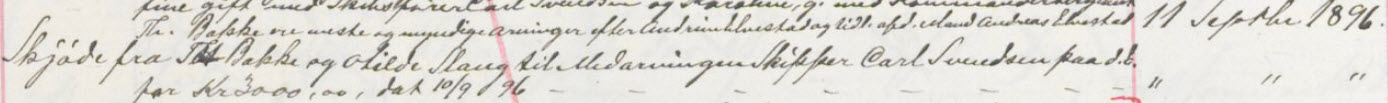 fine gift med Skibsfører Carl Svendsen og Karoline, g. med Kommandersergeant
Th. Bakke ere eneste og myndige arvinger efter Andrine Elvestad og tidl. afd. mand Andreas Elvestad 11 Septbr. 1896.
Skjøde fra Th Bakke og Otilde Slaug til Medarvingen Skipper Carl Svendsen paa d. E. " " "
for Kr 3000,00, dat 10/9 96 — — — — — — — — —